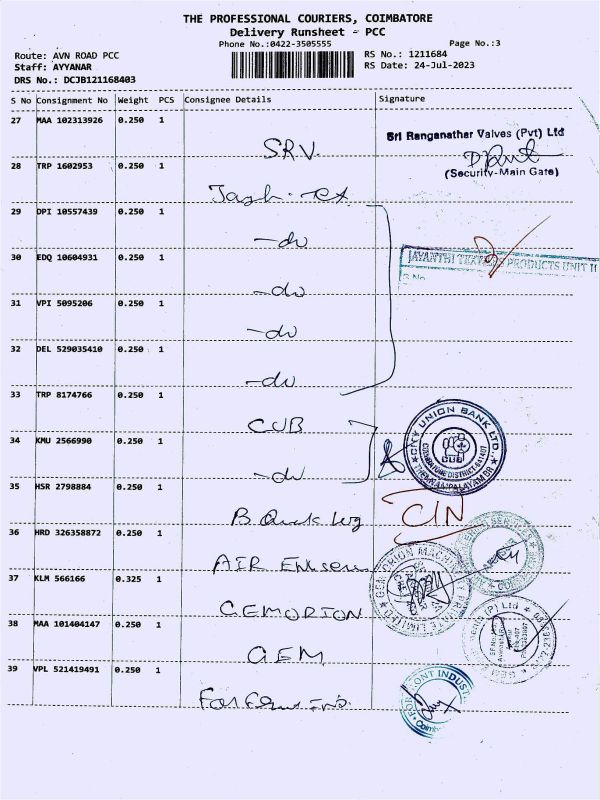 THE PROFESSIONAL COURIERS, COIMBATORE
Delivery Runsheet - PCC
Phone No.:0422-3505555
Page No.:3
Route: AVN ROAD PCC
RS No.: 1211684
Staff: AYYANAR
RS Date: 24-Jul-2023
DRS No.: DCJB121168403
S No Consignment No Weight PCS Consignee Details Signature
27 MAA 102313926 0.250 1
S.R.V.
Sri Ranganathar Valves (Pvt) Ltd
(Security-Main Gate)
28 TRP 1602953 0.250 1
29 DPI 10557439 0.250 1
-do
30 EDQ 10604931 0.250 1
-do
JAYANTHI TEXTILES PRODUCTS UNIT II
S.No
31 VPI 5095206 0.250 1
-do
32 DEL 529035410 0.250 1
-do
33 TRP 8174766 0.250 1
CUB
CITY UNION BANK LTD.
CUB
COIMBATORE DISTRICT-641407
34 KMU 2566990 0.250 1
-do
35 HSR 2798884 0.250 1
B. Quick Log
CIN
36 HRD 326358872 0.250 1
AIR
37 KLM 566166 0.325 1
GEMORION
GEMORION MACHINERY PRIVATE LIMITED
38 MAA 101404147 0.250 1
GEM
39 VPL 521419491 0.250 1